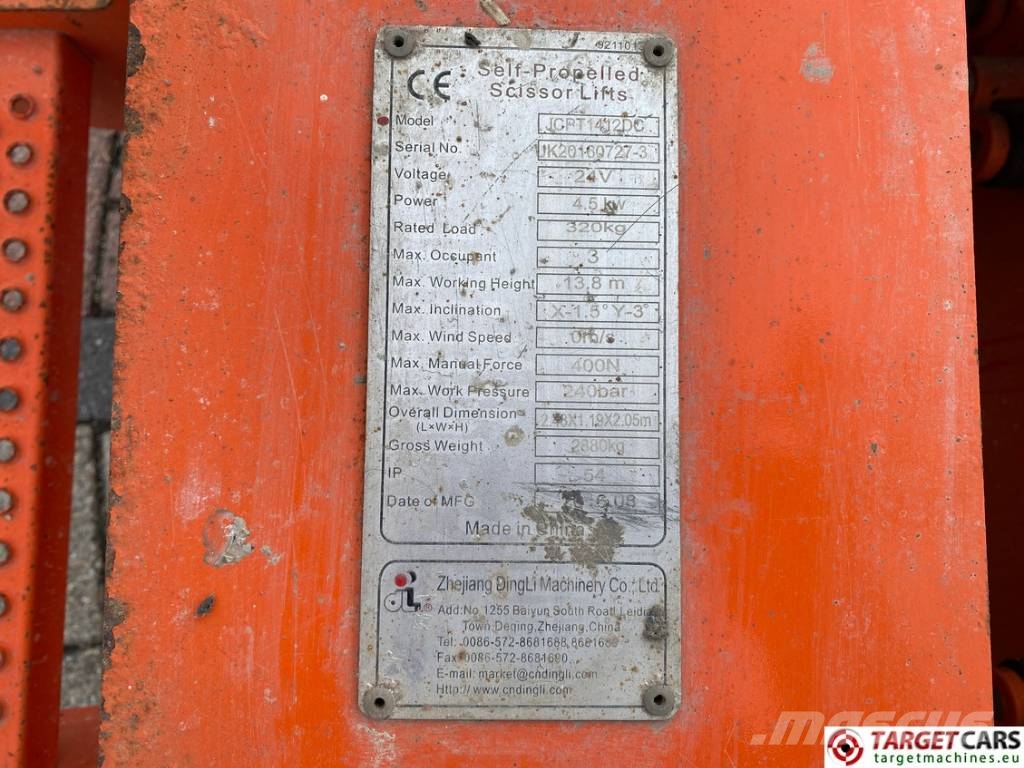 CE
Self-Propelled
Scissor Lifts
Model JCPT1412DC
Serial No. JK20160727-3
Voltage 24V
Power 4.5 kw
Rated Load 320kg
Max. Occupant 3
Max. Working Height 13.8 m
Max. Inclination X-1.5° Y-3°
Max. Wind Speed 0m/s
Max. Manual Force 400N
Max. Work Pressure 240bar
Overall Dimension
(L×W×H)
Gross Weight 2880kg
IP 54
Date of MFG
Made in China
Zhejiang DingLi Machinery Co., Ltd
Add:No.1255 Baiyun South Road
Town,Deqing,Zhejiang,China
Tel: 0086-572-8681688
Fax: 0086-572-8681690
E-mail: market@cndingli.com
Http://www.cndingli.com
mascus
TARGETCARS
targetmachines.eu